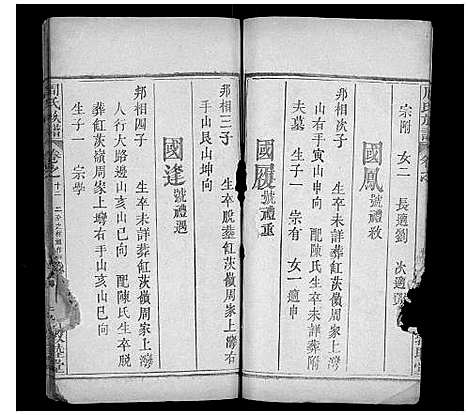 周氏族譜
卷之
宗附 女二 長適劉 次適鄧
國鳳 號禮敎
邦相次子 生卒未詳葬紅茨嶺周家上灣
山右手寅山申向 配陳氏生卒未詳葬附
夫墓 生子一 宗有 女一適申
國履 號禮重
邦相三子 生卒脫葬紅茨嶺周家上灣右
手山艮山坤向
國逢 號禮遇
邦相四子 生卒未詳葬紅茨嶺周家上灣
人行大路邊山亥山巳向 配陳氏生卒脫
葬紅茨嶺周家上灣右手山亥山巳向
生子一 宗學
周氏族譜
卷之十二
敦睦堂